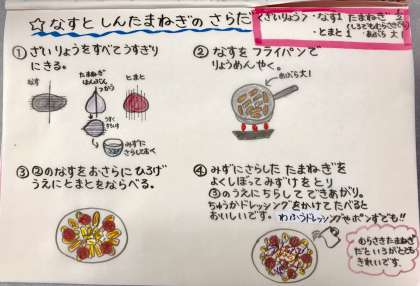 ☆なすと しんたまねぎの さらだ
<ざいりょう>・なす1 たまねぎ
(しろでもむらさきでも)
・とまと1 あぶら 大1
① ざいりょうをすべてうすぎり
にきる。
なす
たまねぎ
はんぶん
つかう
とまと
うすく
すらいす
みずに
さらしておく
② なすを フライパンで
りょうめんやく。
あぶら大1
③ ②のなすをおさらにひろげ
うえにとまとをならべる。
④ みずにさらした たまねぎを
よくしぼってみずけをとり
③のうえにちらして できあがり。
ちゅうかドレッシングをかけてたべると
おいしいです。わふうドレッシングやポンずでも!!
むらさきたまねぎ
だといろがとても
きれいです。